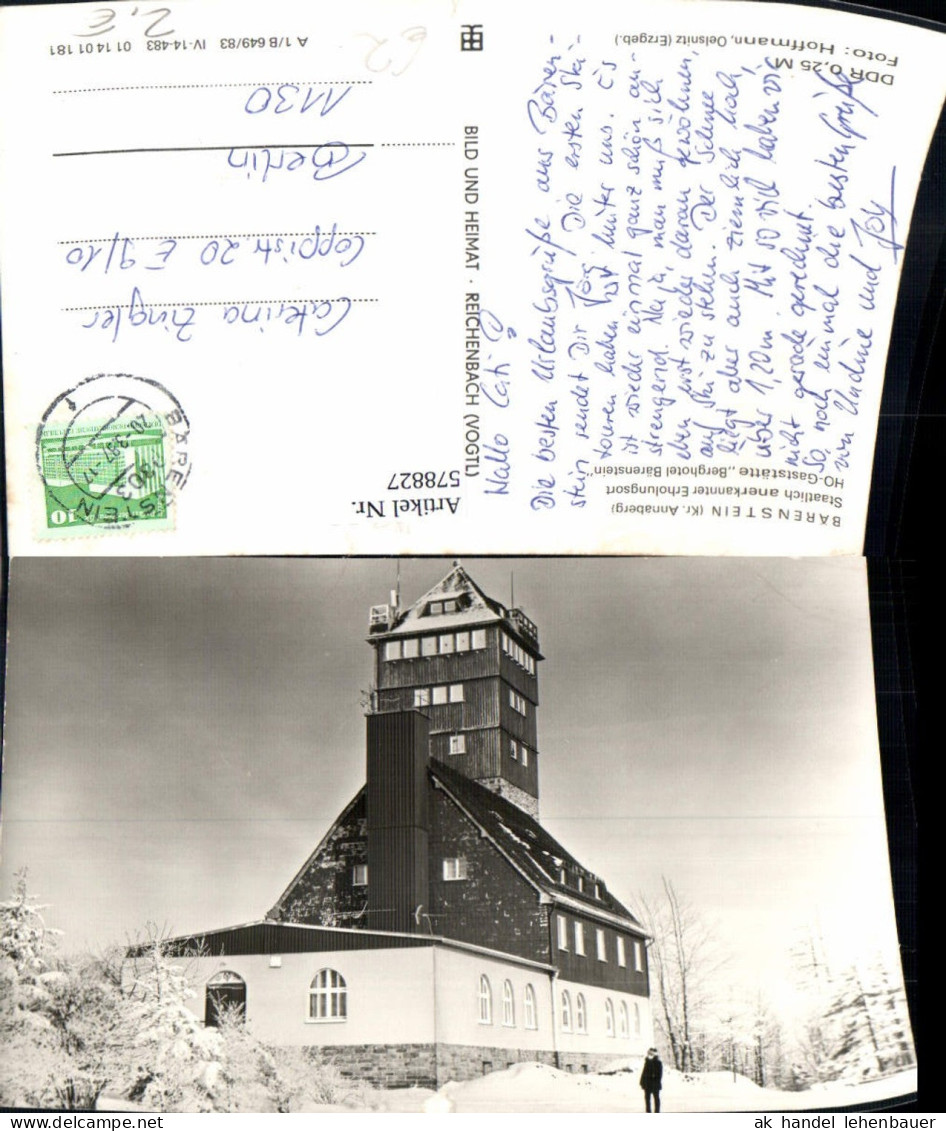 BÄRENSTEIN (Kr. Annaberg)
Staatlich anerkannter Erholungsort
HO-Gaststätte „Berghotel Bärenstein"
Hallo Cati!
Die besten Urlaubsgrüße aus Bären-
stein sendet Dir Jörg. Die ersten Ski-
touren haben wir hinter uns. Es
ist wieder einmal ganz schön an-
strengend. Na ja, man muß sich
eben erst wieder daran gewöhnen,
auf Ski zu stehen. Der Schnee
liegt aber auch ziemlich hoch,
über 1,20m. Mit so viel haben wir
nicht gerade gerechnet.
So, noch einmal die besten Grüße
von Undine und Joy
DDR 0,25 M
Foto: Hoffmann, Oelsnitz (Erzgeb.)
BILD UND HEIMAT · REICHENBACH (VOGTL)
Artikel Nr.
578827
BÄRENSTEIN
9303
10
Caterina Zingler
Coppistr. 20 E 9/10
Berlin
1130
A 1/B 649/83 IV-14-483 01 14 01 181
2,€
62
ak handel lehenbauer